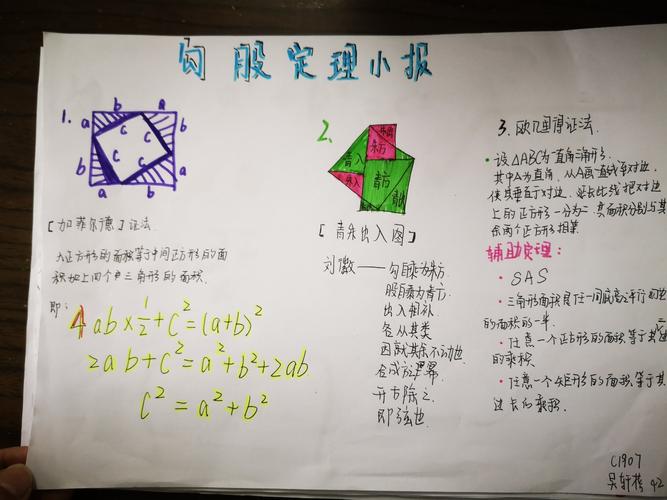 勾股定理小报
1.
b a
a b
c c
c c
b a
a b
[加菲尔德]证法
大正方形的面积等于中间正方形的面
积加上四个三角形的面积.
即:
4ab×1/2+c²=(a+b)²
2ab+c²=a²+b²+2ab
c²=a²+b²
2.
朱出
朱方
青入
朱入
青方
青出
[青朱出入图]
刘徽——勾自乘为朱方
股自乘为青方
出入相补
各从其类
因就其余不动也
合成弦方之幂
开方除之
即弦也.
3.欧几里得证法.
·设△ABC为直角三角形.
其中A为直角,从A画一直线至对边,
使其垂直于对边.延长此线把对边
上的正方形一分为二.其面积分别与其
余两个正方形相等
辅助定理:
·SAS
·三角形面积是任一同底同高平行四边形
的面积的一半.
·任意一个正方形的面积等于其二边
的乘积.
·任意一个矩形的面积等于其
边长的乘积.
C1907
42